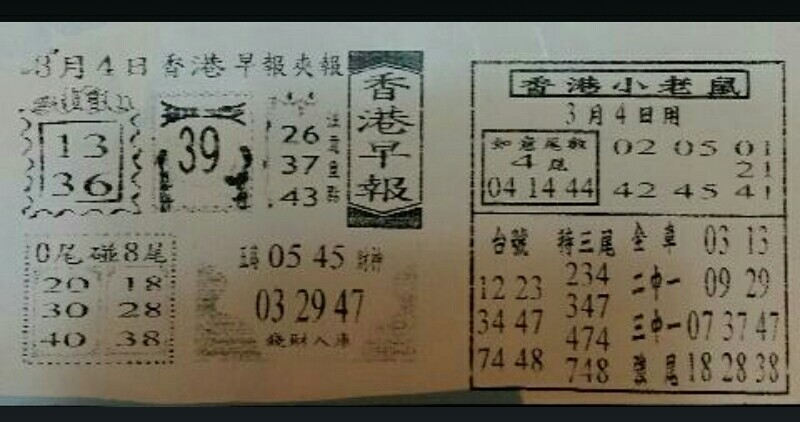 3月4日 香港早報夾報
香港早報
13
36
39
26
37
43
0尾碰8尾
20 18
30 28
40 38
05 45 財神
03 29 47
發財入庫
香港小老鼠
3月4日用
如意尾數
4尾
04 14 44
02 05 01
21
42 45 41
台號 特三尾 全車 03 13
12 23 234 二中一 09 29
34 47 347 三中一 07 37 47
74 48 474
748 雙尾 18 28 38